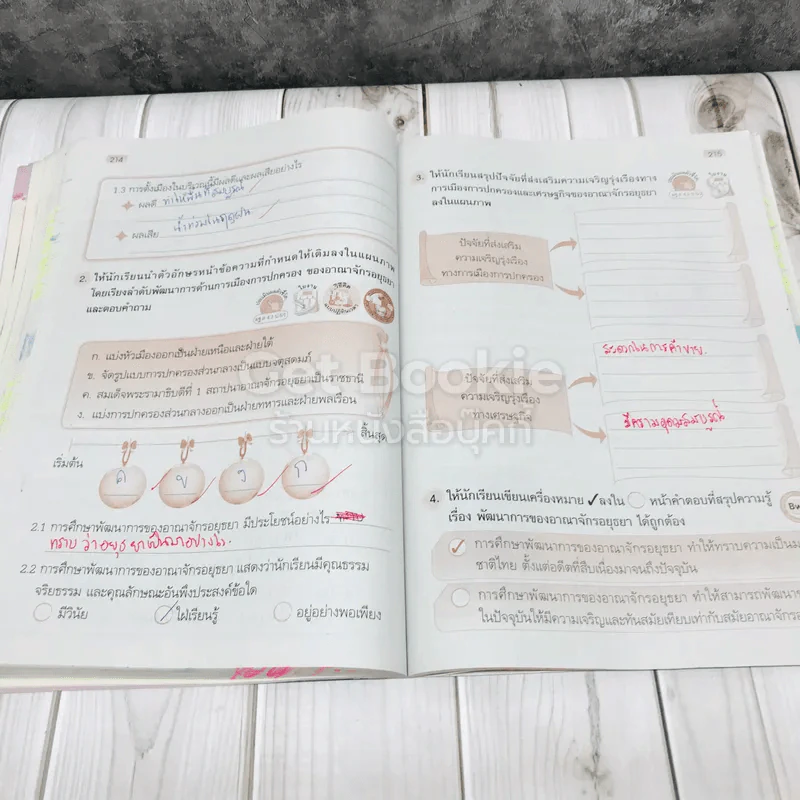 214
1.3 การตั้งเมืองในบริเวณนี้มีผลดีและผลเสียอย่างไร
ผลดี ทำให้พื้นที่อุดมบูรณ์
ผลเสีย น้ำท่วมในฤดูฝน
2. ให้นักเรียนนำตัวอักษรหน้าข้อความที่กำหนดให้เติมลงในแผนภาพ
โดยเรียงลำดับพัฒนาการด้านการเมืองการปกครอง ของอาณาจักรอยุธยา
และตอบคำถาม
ก. แบ่งหัวเมืองออกเป็นฝ่ายเหนือและฝ่ายใต้
ข. จัดรูปแบบการปกครองส่วนกลางเป็นแบบจตุสดมภ์
ค. สมเด็จพระรามาธิบดีที่ 1 สถาปนาอาณาจักรอยุธยาเป็นราชธานี
ง. แบ่งการปกครองส่วนกลางออกเป็นฝ่ายทหารและฝ่ายพลเรือน
เริ่มต้น
สิ้นสุด
ค ข ง ก
2.1 การศึกษาพัฒนาการของอาณาจักรอยุธยา มีประโยชน์อย่างไร
ทราบว่าอยุธยาเป็นมาอย่างไร
2.2 การศึกษาพัฒนาการของอาณาจักรอยุธยา แสดงว่านักเรียนมีคุณธรรม
จริยธรรม และคุณลักษณะอันพึงประสงค์ข้อใด
มีวินัย ใฝ่เรียนรู้ อยู่อย่างพอเพียง
215
3. ให้นักเรียนสรุปปัจจัยที่ส่งเสริมความเจริญรุ่งเรืองทาง
การเมืองการปกครองและเศรษฐกิจของอาณาจักรอยุธยา
ลงในแผนภาพ
ปัจจัยที่ส่งเสริม
ความเจริญรุ่งเรือง
ทางการเมืองการปกครอง
สะดวกในการค้าขาย
ปัจจัยที่ส่งเสริม
ความเจริญรุ่งเรือง
ทางเศรษฐกิจ
มีความอุดมสมบูรณ์
4. ให้นักเรียนเขียนเครื่องหมาย ✓ ลงใน ◯ หน้าคำตอบที่สรุปความรู้
เรื่อง พัฒนาการของอาณาจักรอยุธยา ได้ถูกต้อง
การศึกษาพัฒนาการของอาณาจักรอยุธยา ทำให้ทราบความเป็นม
ชาติไทย ตั้งแต่อดีตที่สืบเนื่องมาจนถึงปัจจุบัน
การศึกษาพัฒนาการของอาณาจักรอยุธยา ทำให้สามารถพัฒนา
ในปัจจุบันให้มีความเจริญและทันสมัยเทียบเท่ากับสมัยอาณาจักร
Get Bookie
ร้านหนังสือบุ๊คกี้